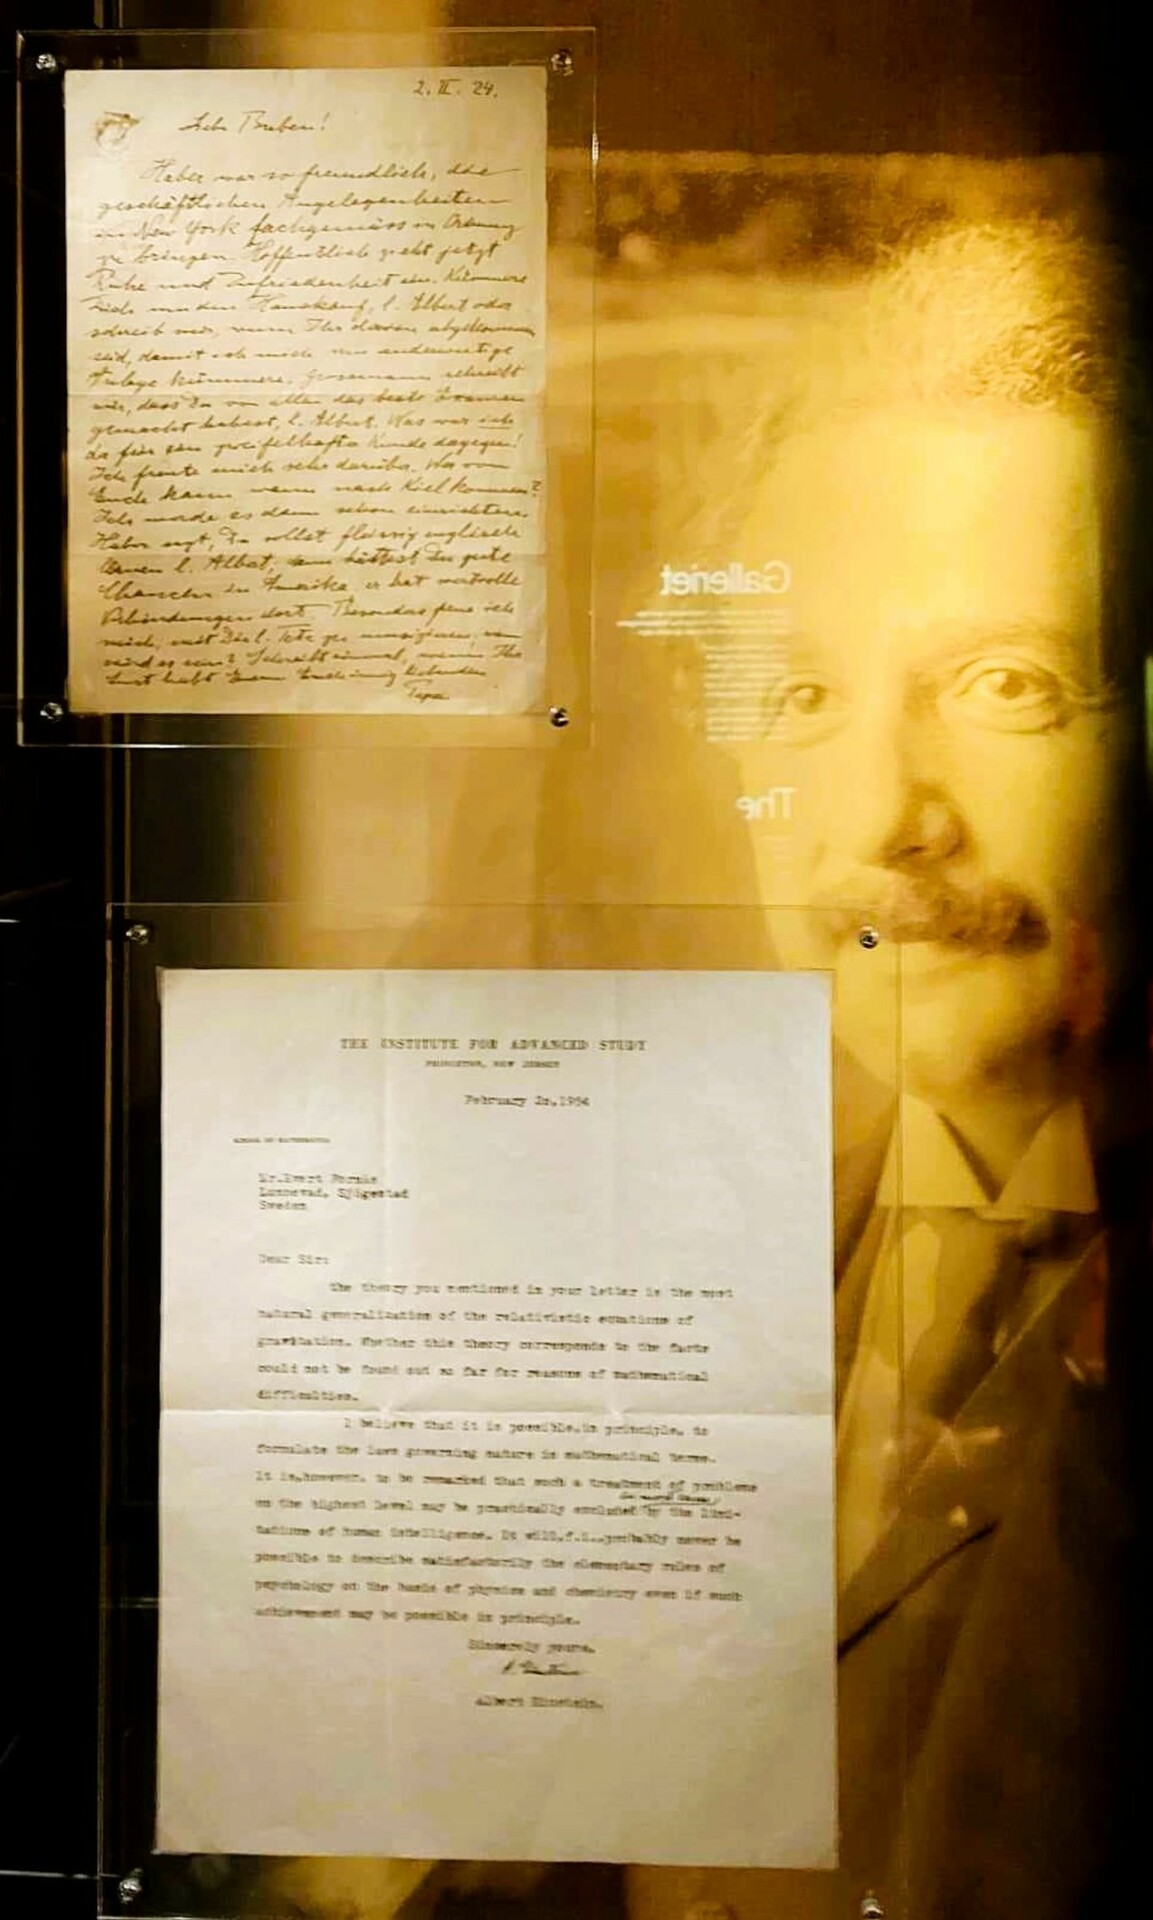 2. II. 24.
Liebe Buben!
Haber war so freundlich, die
geschäftlichen Angelegenheiten
in New York fachgemäss in Ordnung
zu bringen. Hoffentlich zieht jetzt
Ruhe und Zufriedenheit ein. Kümmere
Dich um den Hauskauf, l. Albert oder
schreib mir, wenn Ihr davon abgekommen
seid, damit ich mich um anderweitige
Anlage kümmere. schreibt
mir, dass Du von allen das beste Examen
gemacht habest, l. Albert. Was war ich
da für ein zweifelhafter Kunde dagegen!
Ich freute mich sehr darüber. Wer von
Euch kann wann nach Kiel kommen?
Ich werde es dann schon einrichten.
Haber sagt, Du sollst fleissig englisch
lernen l. Albert, dann hättest Du gute
Chancen in Amerika, er hat wertvolle
Verbindungen dort. Besonders freue ich
mich, mit Dir l. Tete zu musizieren, wann
wird es sein? Schreibt einmal, wenn Ihr
Lust habt Eurem Euch innig liebenden
Papa
Galleriet
The
THE INSTITUTE FOR ADVANCED STUDY
PRINCETON, NEW JERSEY
February 2n, 1954
SCHOOL OF MATHEMATICS
Mr. Evert
Lunnevad, Sjögestad
Sweden
Dear Sir:
The theory you mentioned in your letter is the most
natural generalization of the relativistic equations of
gravitation. Whether this theory corresponds to the facts
could not be found out so far for reasons of mathematical
difficulties.
I believe that it is possible, in principle, to
formulate the laws governing nature in mathematical terms.
It is, however, to be remarked that such a treatment of problems
on the highest level may be practically excluded by the limi-
tations of human intelligence. It will, f.i., probably never be
possible to describe satisfactorily the elementary rules of
psychology on the basis of physics and chemistry even if such
achievement may be possible in principle.
Sincerely yours,
A. Einstein
Albert Einstein.